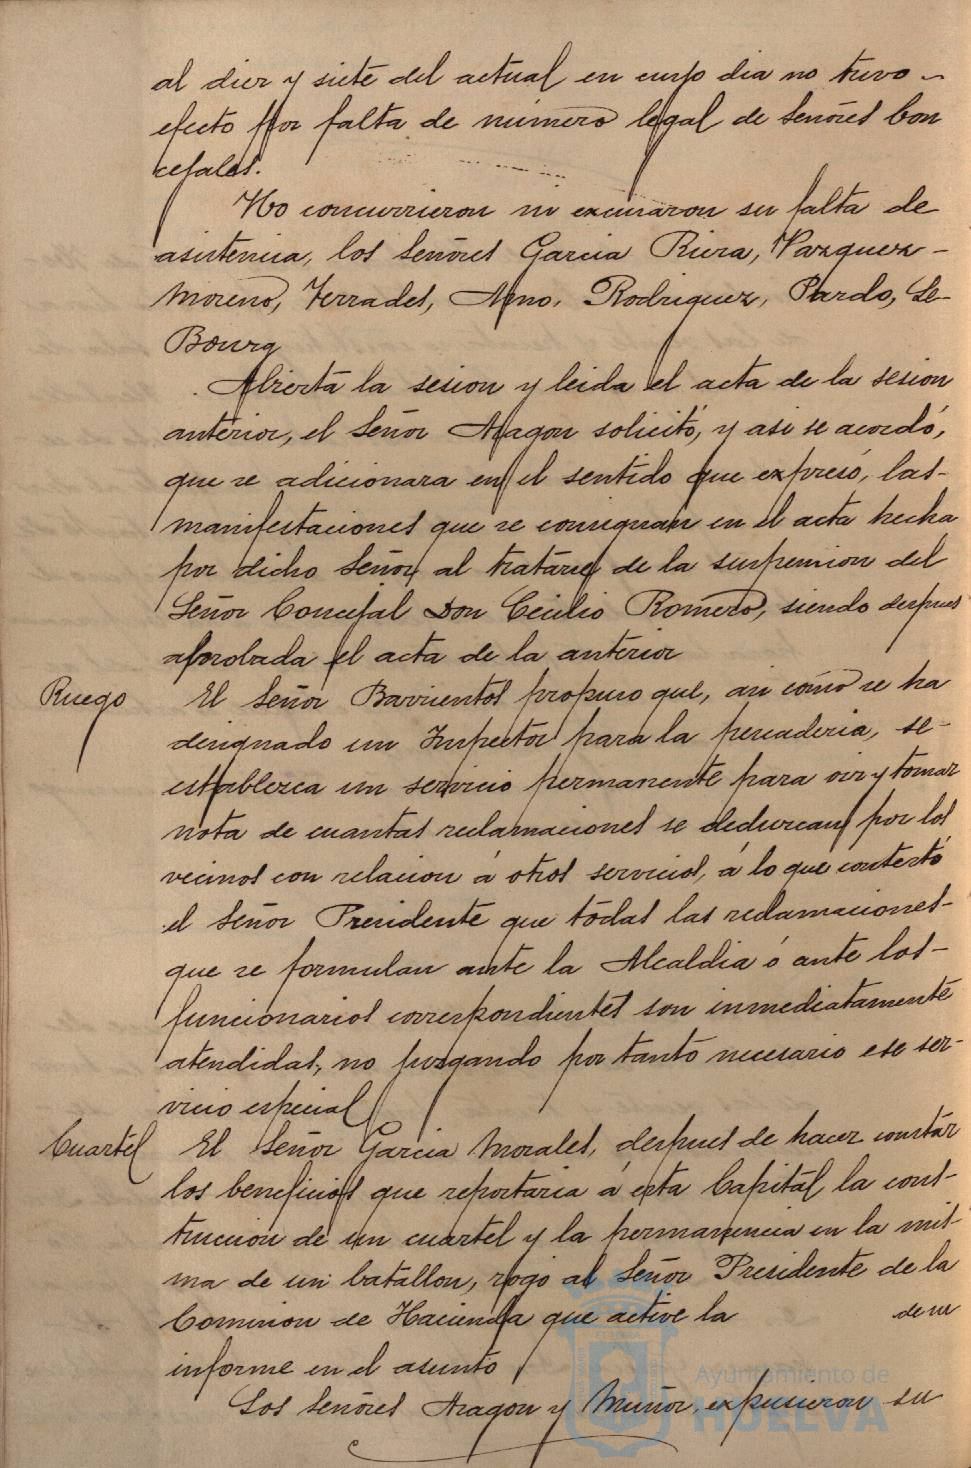 al diez y siete del actual en cuyo dia no tuvo -
efecto por falta de número legal de Señores Con
cejales.
No concurrieron ni excusaron su falta de
asistencia, los Señores Garcia Riera, Vazquez -
Moreno, Terrades, Amo, Rodriguez, Pardo, Le-
Bourg
Abierta la sesion y leida el acta de la sesion
anterior, el Señor Aragon solicitó, y asi se acordó,
que se adicionara en el sentido que expresó, las-
manifestaciones que se consignan en el acta hecha
por dicho Señor al tratarse de la suspension del
Señor Concejal Don Cecilio Romero, siendo despues
aprobada el acta de la anterior
Ruego El Señor Barrientos propuso que, asi como se ha
designado un Inspector para la pescaderia, se-
establezca un servicio permanente para oir y tomar
nota de cuantas reclamaciones se deduzcan por los
vecinos con relacion á otros servicios, á lo que contestó
el Señor Presidente que todas las reclamaciones-
que se formulan ante la Alcaldia ó ante los-
funcionarios correspondientes son inmediatamente
atendidas, no juzgando por tanto necesario ese ser-
vicio especial
Cuartel El Señor Garcia Morales, despues de hacer constar
los beneficios que reportaria á esta Capital la cons-
truccion de un cuartel y la permanencia en la mis-
ma de un batallon, rogo al Señor Presidente de la
Comision de Hacienda que active la de su
informe en el asunto
Los Señores Aragon y Muñoz, expusieron su
Ayuntamiento de
HUELVA